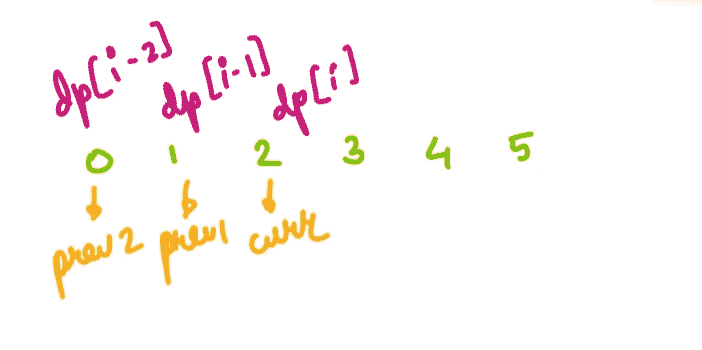 dp[i-2] dp[i-1] dp[i]
0 1 2 3 4 5
prev2 prev1 curr